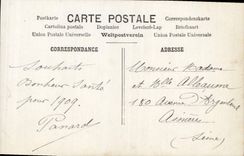 Postkarte CARTE POSTALE Correspondenzkarte
Cartolina postale Dopisnice Levelezö-Lap Briefkaart
Union Postale Universelle Weltpostverein Union Postale Universelle
CORRESPONDANCE
Souhaits
Bonheur Santé
pour 1909.
Panard
ADRESSE
Monsieur Madame
et Mlle
180 Avenue d'Argenteuil
Asnières
(Seine)